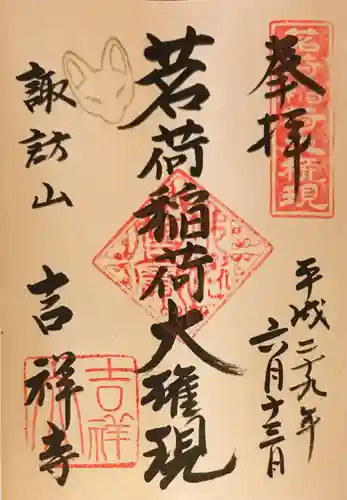 奉拝
茗荷稲荷大権現
平成二十九年
六月十三日
茗荷稲荷大権現
諏訪山
吉祥寺
吉祥